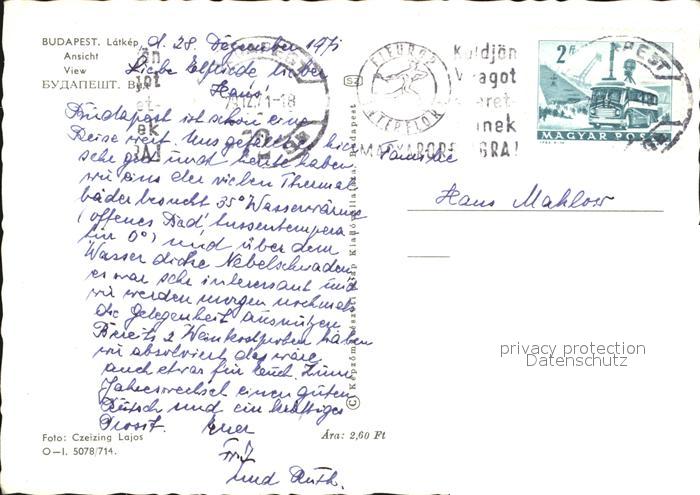 BUDAPEST. Látkép
Ansicht
View
БУДАПЕШТ. Вид
d. 28. Dezember 1971
Liebe Elfriede lieber
Hans!
Budapest ist schon eine
Reise wert. Uns gefällt es hier
sehr gut und heute haben
wir eins der vielen Thermal
bäder besucht 35° Wasserwärme
(offenes Bad, Aussentempera
tur 0°) und über dem
Wasser dicke Nebelschwaden
es war sehr interessant und
wir werden morgen nochmals
die Gelegenheit ausnützen.
Bereits 2 Weinkostproben haben
wir absolviert das wäre
auch etwas für Euch. Zum
Jahreswechsel einen guten
Rutsch und ein kräftiges
Prosit. Euer
Fritz
und Ruth.
Foto: Czeizing Lajos
O—I. 5078/714.
Ára: 2,60 Ft
Képzőművészeti Alap Kiadóvállalata, Budapest
FLEUROP
INTERFLOR
Küldjön
Virágot
szeret-
einek
MAGYARORSZÁGRA!
71.12.-18
2 Ft
MAGYAR POSTA
BUDAPEST
Familie
Hans Mahlow
privacy protection
Datenschutz